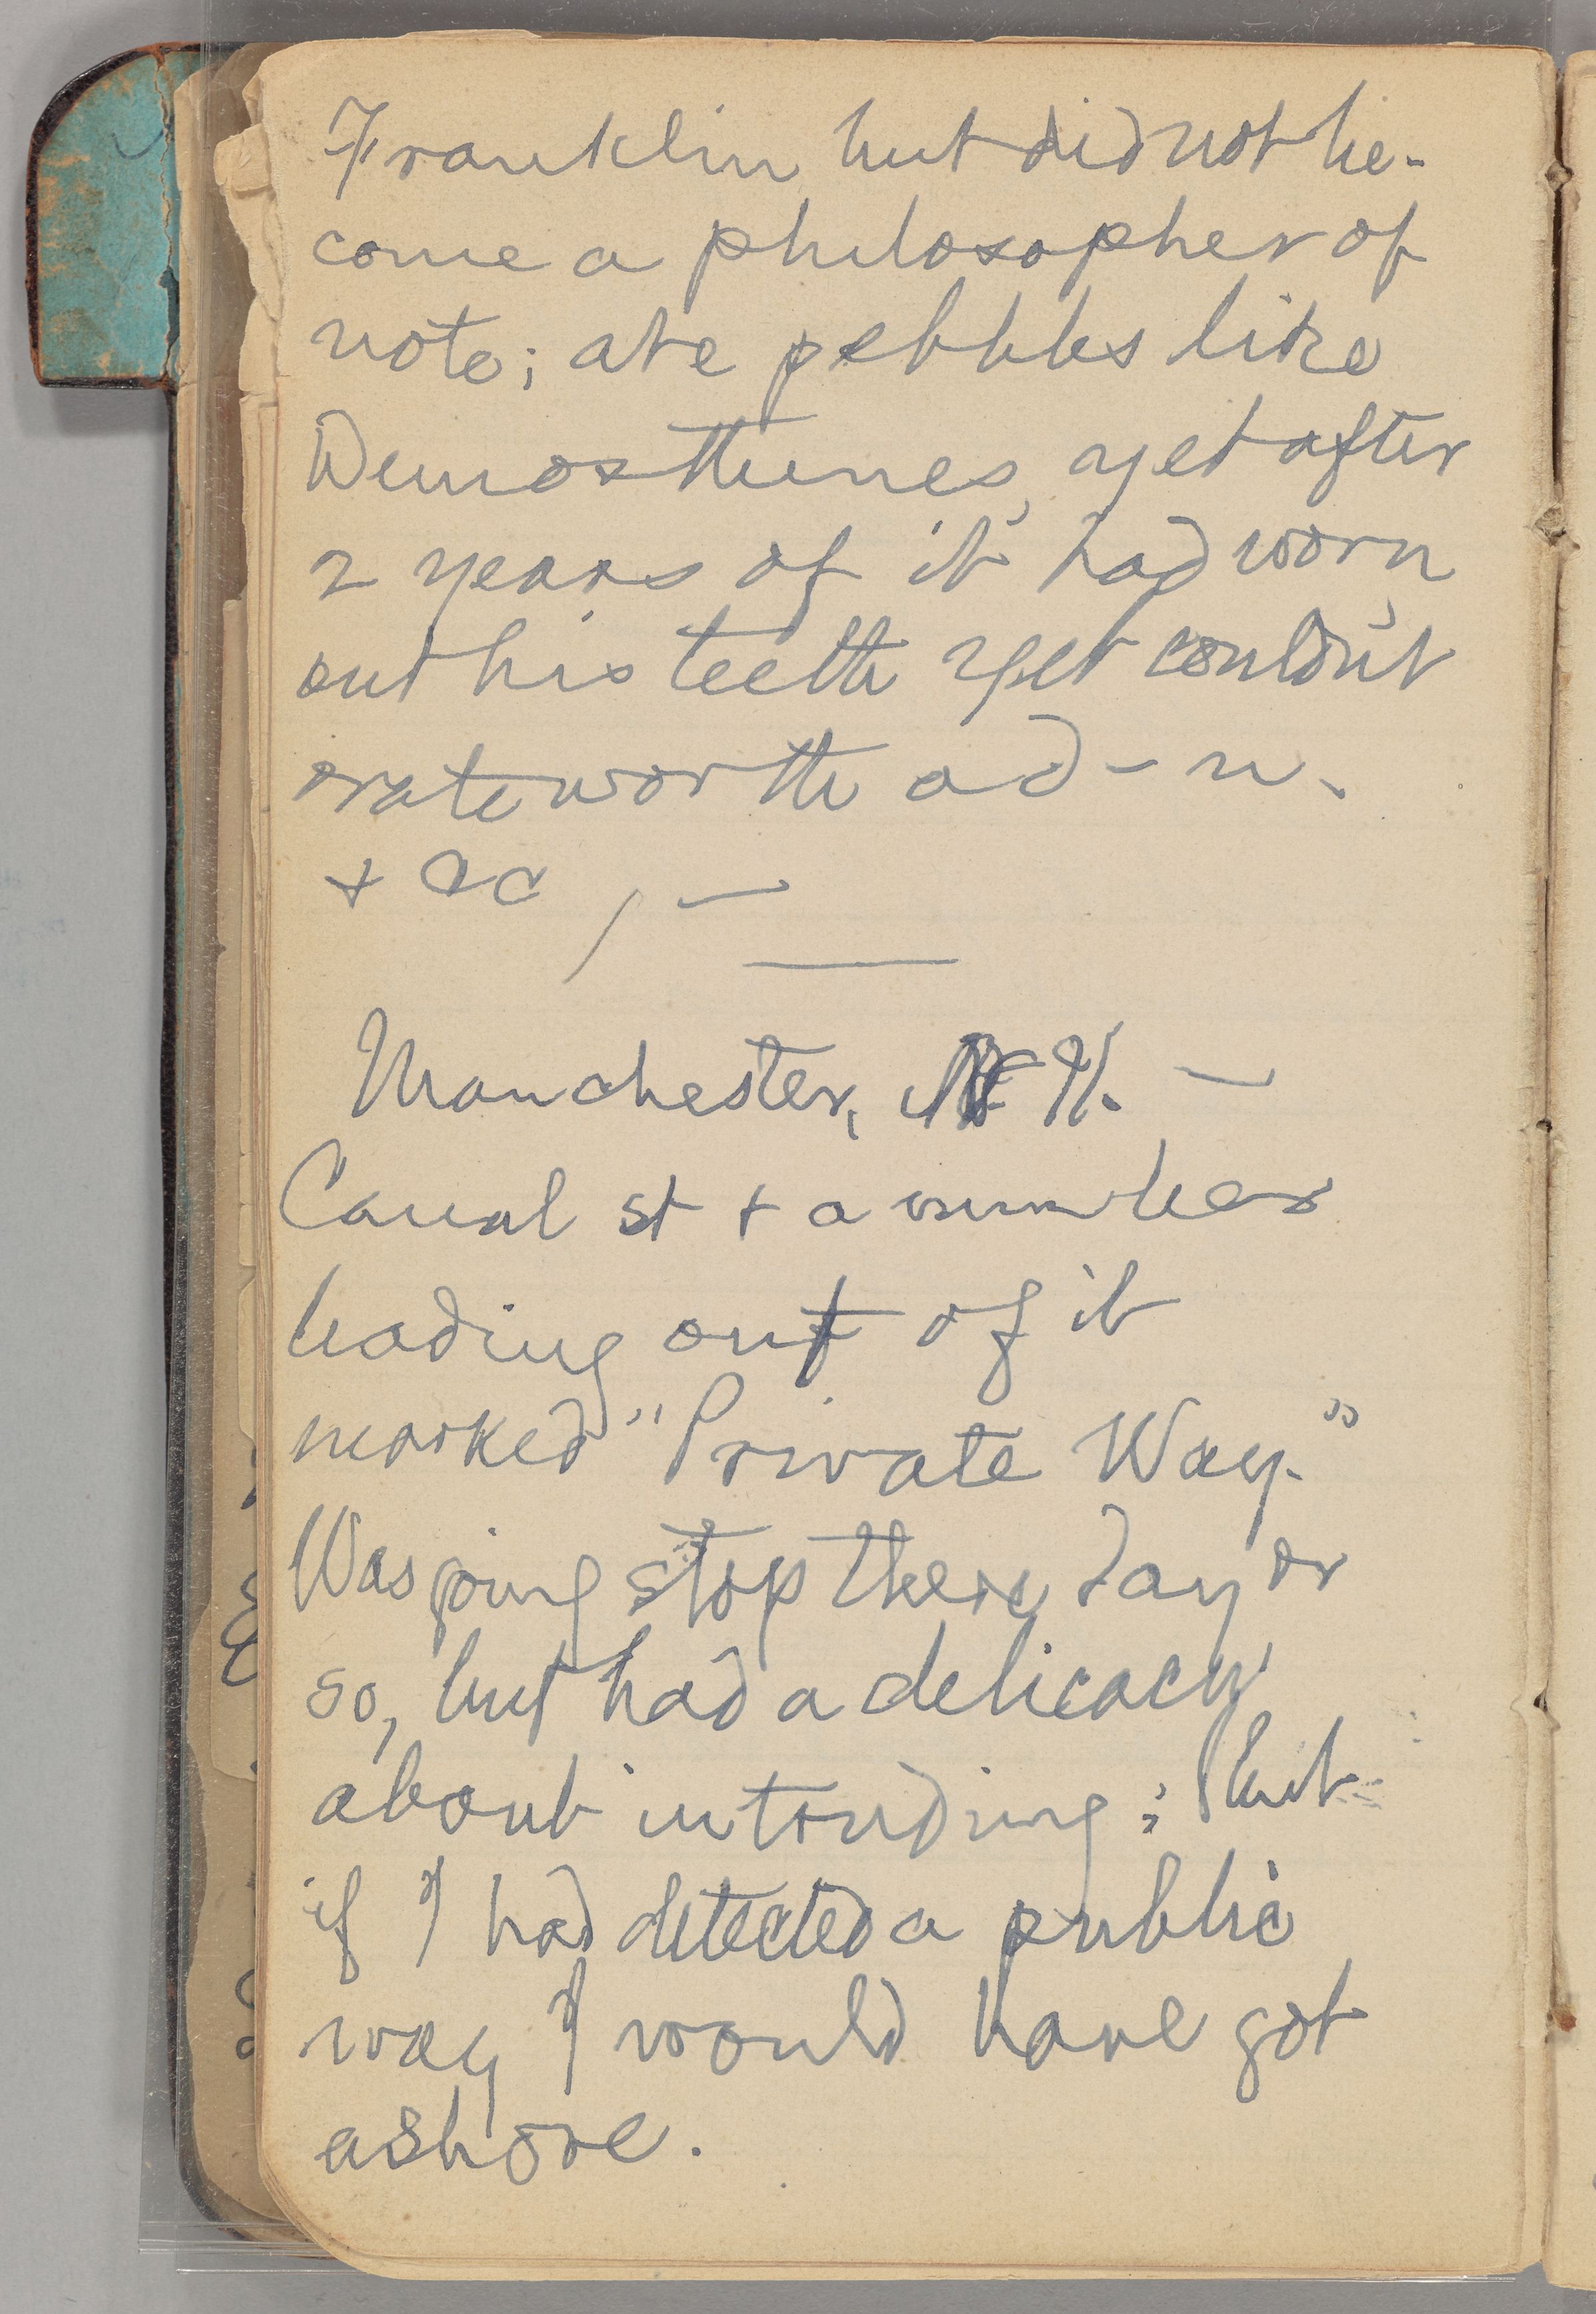 Franklin, but did not be-
come a philosopher of
note; ate pebbles like
Demosthenes, yet after
2 years of it had worn
out his teeth yet couldn't
orate worth a d—n.
+ &c, —
Manchester, N. H. —
Canal st + a number
leading out of it
marked "Private Way."
Was going stop there day or
so, but had a delicacy
about intruding; but
if I had detected a public
way I would have got
ashore.